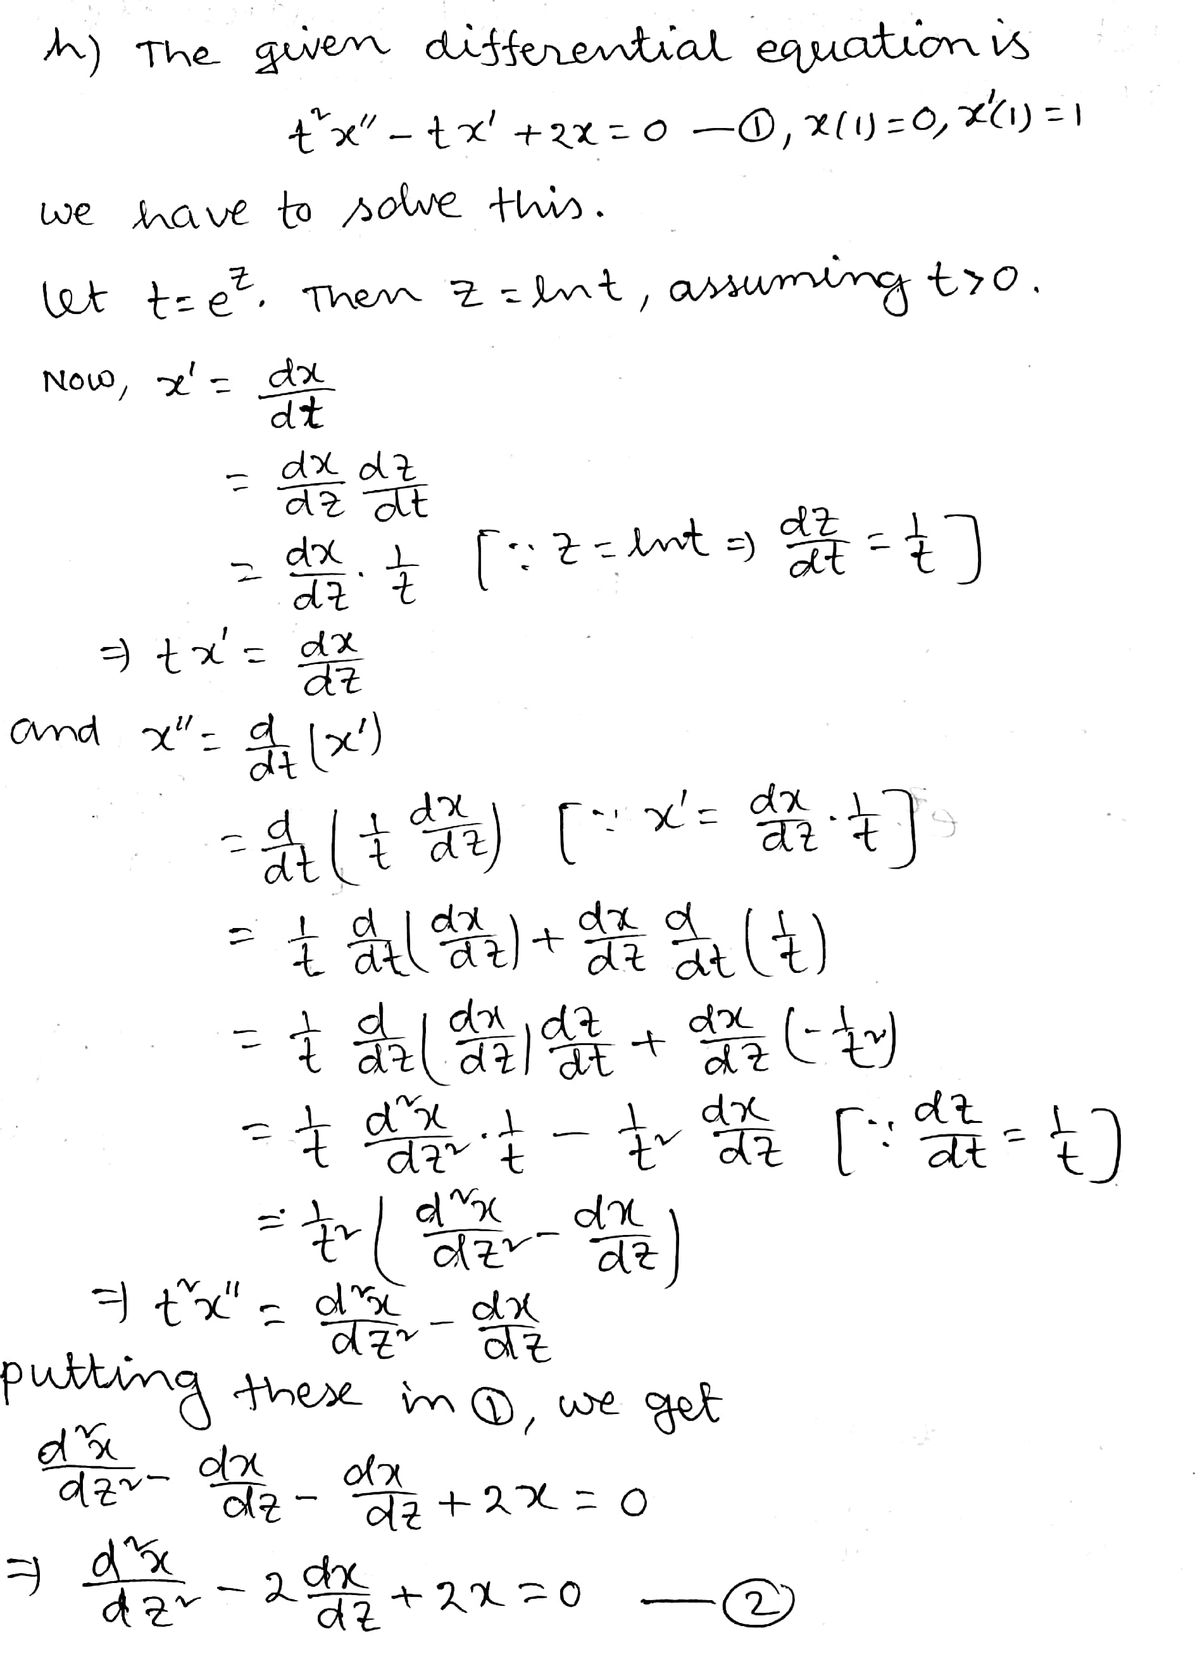 h) The given differential equation is
t²x" - tx' + 2x = 0 —①, x(1)=0, x'(1)=1
we have to solve this.
let t=e^z. Then z = lnt, assuming t>0.
Now, x' = dx/dt
= dx/dz dz/dt
= dx/dz · 1/t [∵ z = lnt ⇒ dz/dt = 1/t]
⇒ tx' = dx/dz
and x" = d/dt (x')
= d/dt (1/t dx/dz) [∵ x' = dx/dz · 1/t]
= 1/t d/dt (dx/dz) + dx/dz d/dt (1/t)
= 1/t d/dz (dx/dz) dz/dt + dx/dz (-1/t²)
= 1/t d²x/dz² · 1/t - 1/t² dx/dz [∵ dz/dt = 1/t]
= 1/t² (d²x/dz² - dx/dz)
⇒ t²x" = d²x/dz² - dx/dz
putting these in ①, we get
d²x/dz² - dx/dz - dx/dz + 2x = 0
⇒ d²x/dz² - 2 dx/dz + 2x = 0 —②